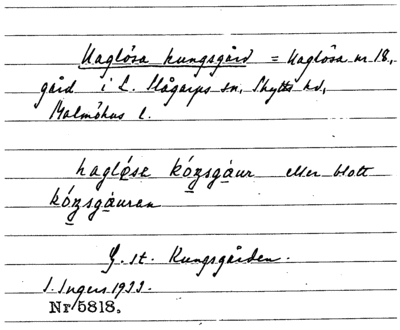 Haglösa kungsgård = Haglösa nr 18,
gård i L. Slågarps sn, Skytts hd,
Malmöhus l.
haglǿse kóŋsgáur eller blott
kóŋsgáuren
G. st. Kungsgården.
I. Ingers 1933.
Nr 5818.